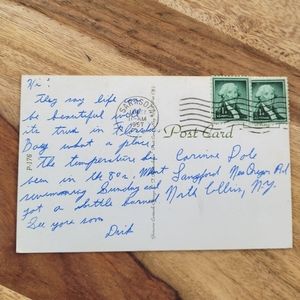 Hi!
They say life
be beautiful and
its true in Florida
Day what a place,
the temperature has
been in the 80s. Went
swimming Sunday and
got a little burned
See you soon
Dick
SARASOTA
1957
Post Card
Corinne Dole
Langford New Oregon Rd
North Collins, N.Y.
P-176